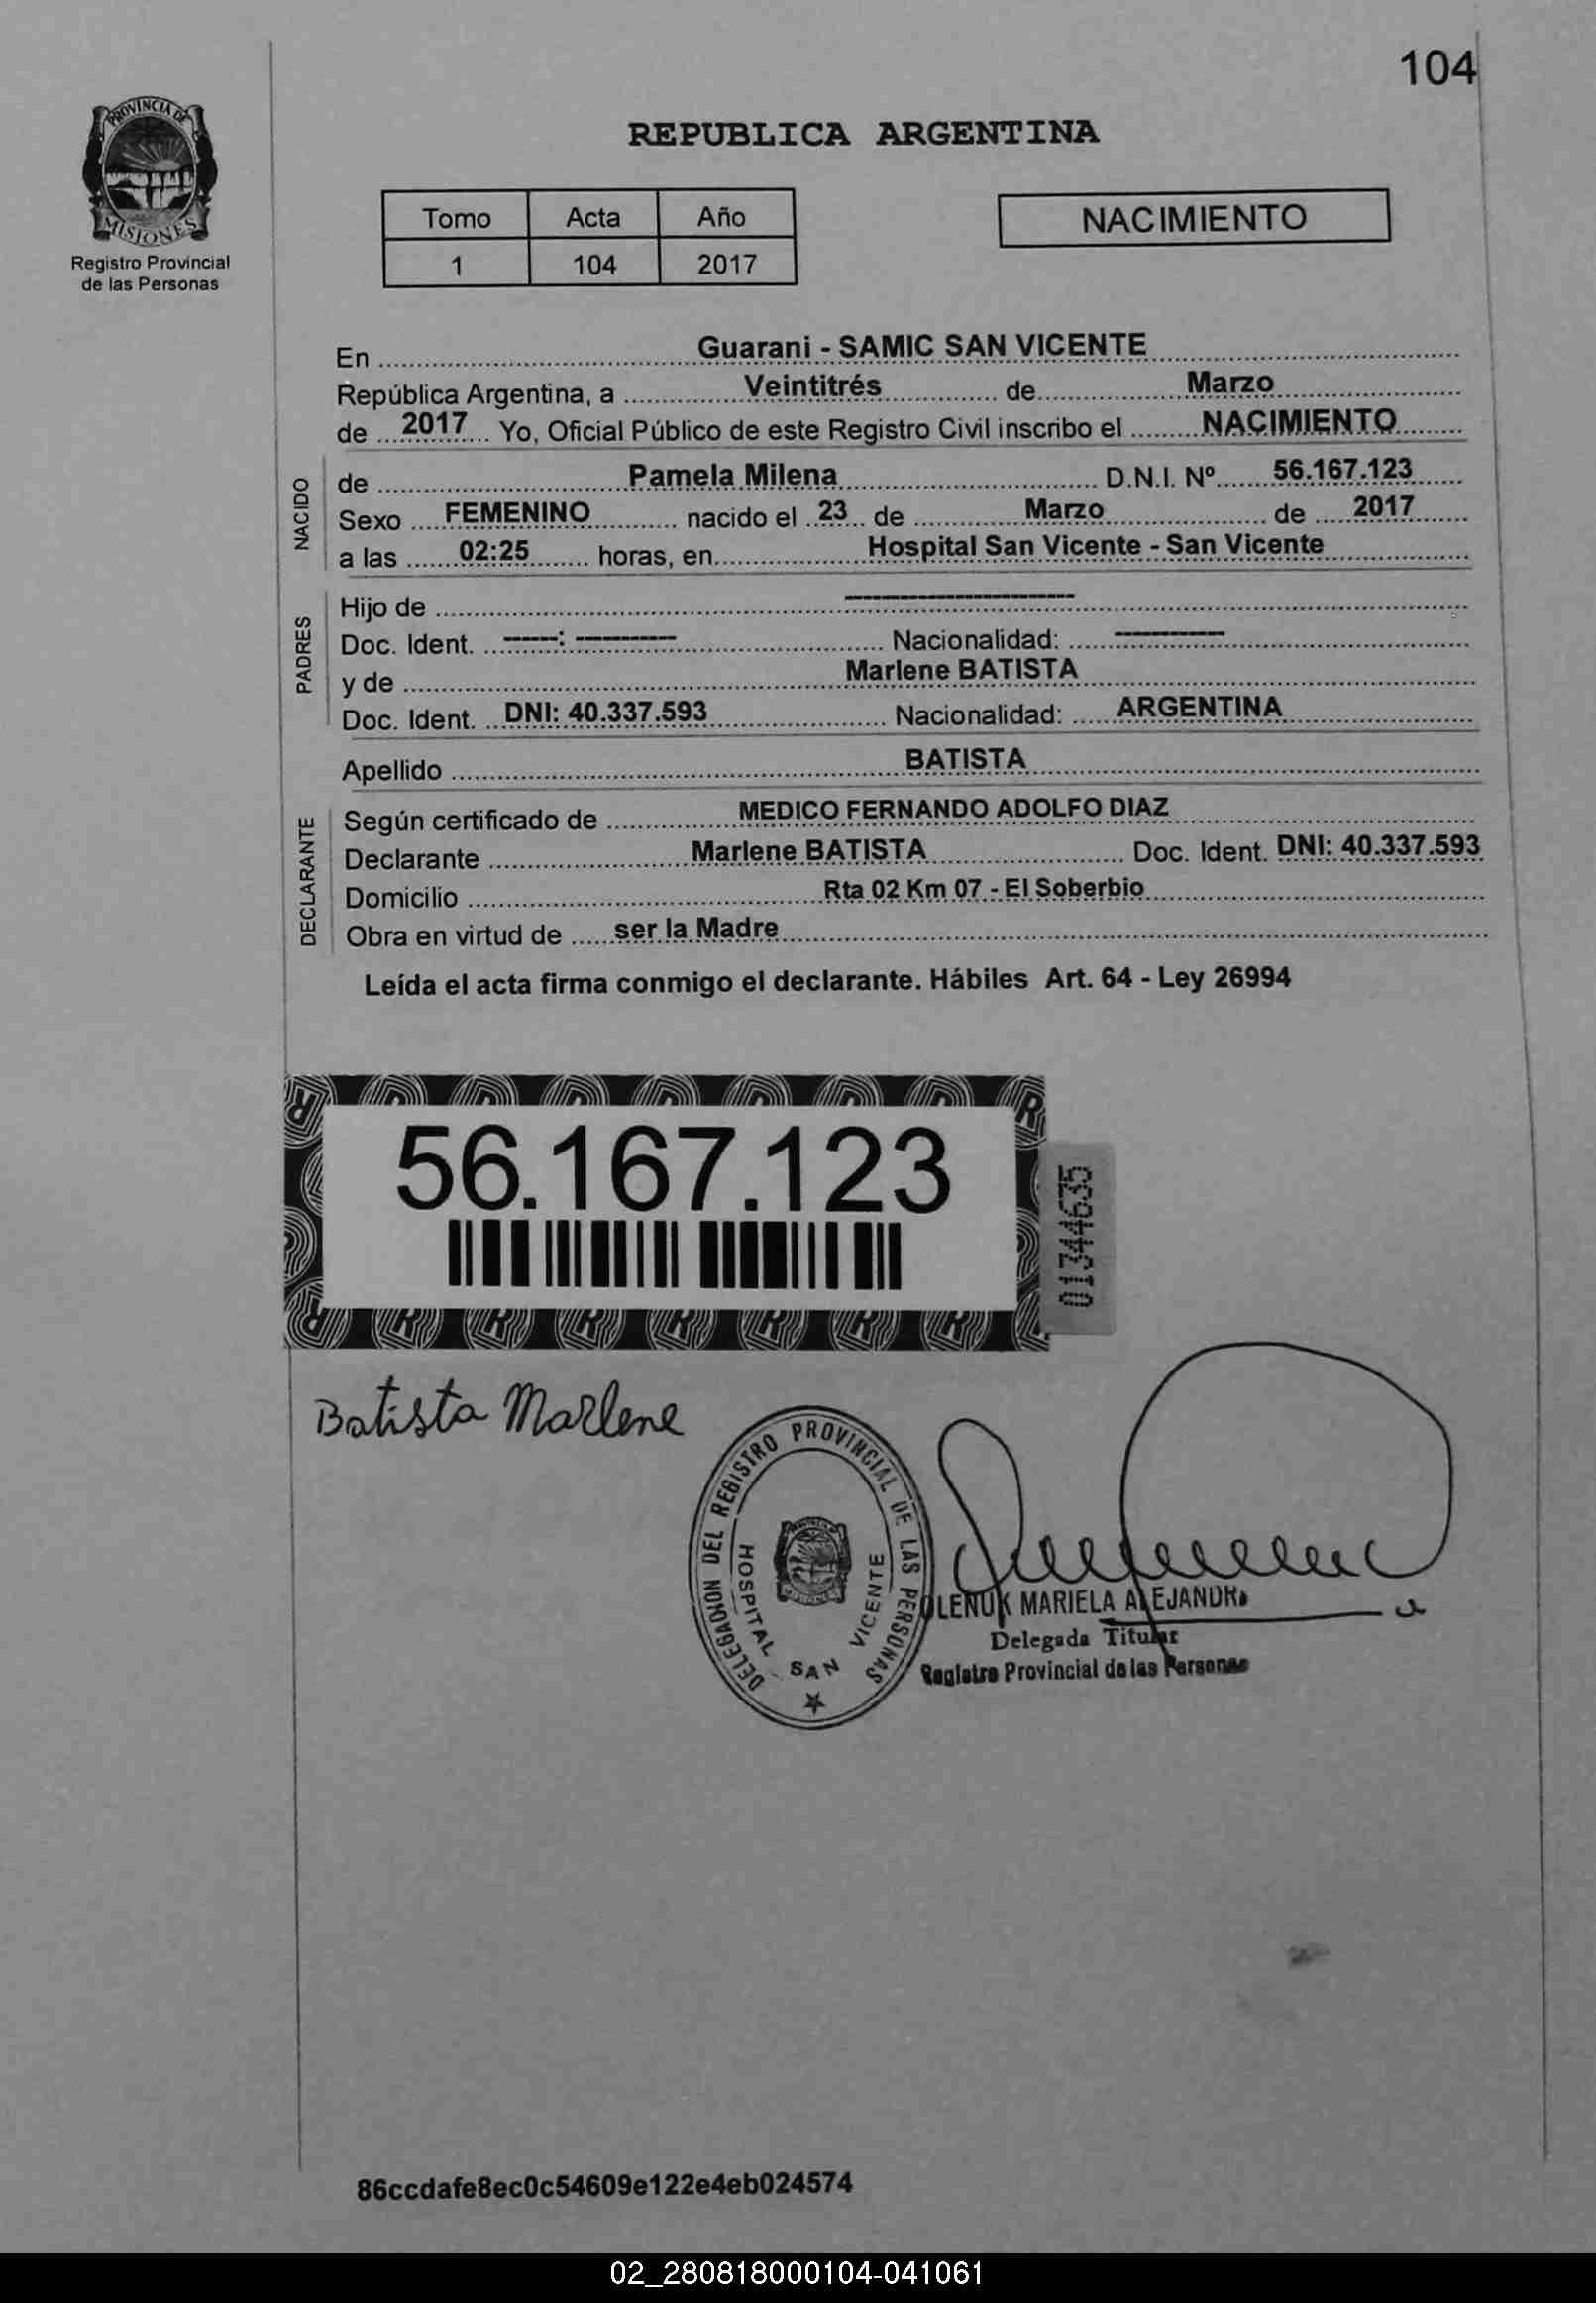 104
PROVINCIA DE
MISIONES
Registro Provincial
de las Personas
REPUBLICA ARGENTINA
Tomo Acta Año
1 104 2017
NACIMIENTO
En Guarani - SAMIC SAN VICENTE
República Argentina, a Veintitrés de Marzo
de 2017 Yo, Oficial Público de este Registro Civil inscribo el NACIMIENTO
NACIDO
de Pamela Milena D.N.I. Nº 56.167.123
Sexo FEMENINO nacido el 23 de Marzo de 2017
a las 02:25 horas, en Hospital San Vicente - San Vicente
PADRES
Hijo de ----------
Doc. Ident. -----: ---------- Nacionalidad: ----------
y de Marlene BATISTA
Doc. Ident. DNI: 40.337.593 Nacionalidad: ARGENTINA
Apellido BATISTA
DECLARANTE
Según certificado de MEDICO FERNANDO ADOLFO DIAZ
Declarante Marlene BATISTA Doc. Ident. DNI: 40.337.593
Domicilio Rta 02 Km 07 - El Soberbio
Obra en virtud de ser la Madre
Leída el acta firma conmigo el declarante. Hábiles Art. 64 - Ley 26994
56.167.123
01344635
Batista Marlene
DELEGACION DEL REGISTRO PROVINCIAL DE LAS PERSONAS
HOSPITAL SAN VICENTE
OLENUK MARIELA ALEJANDRA
Delegada Titular
Registro Provincial de las Personas
86ccdafe8ec0c54609e122e4eb024574
02_280818000104-041061